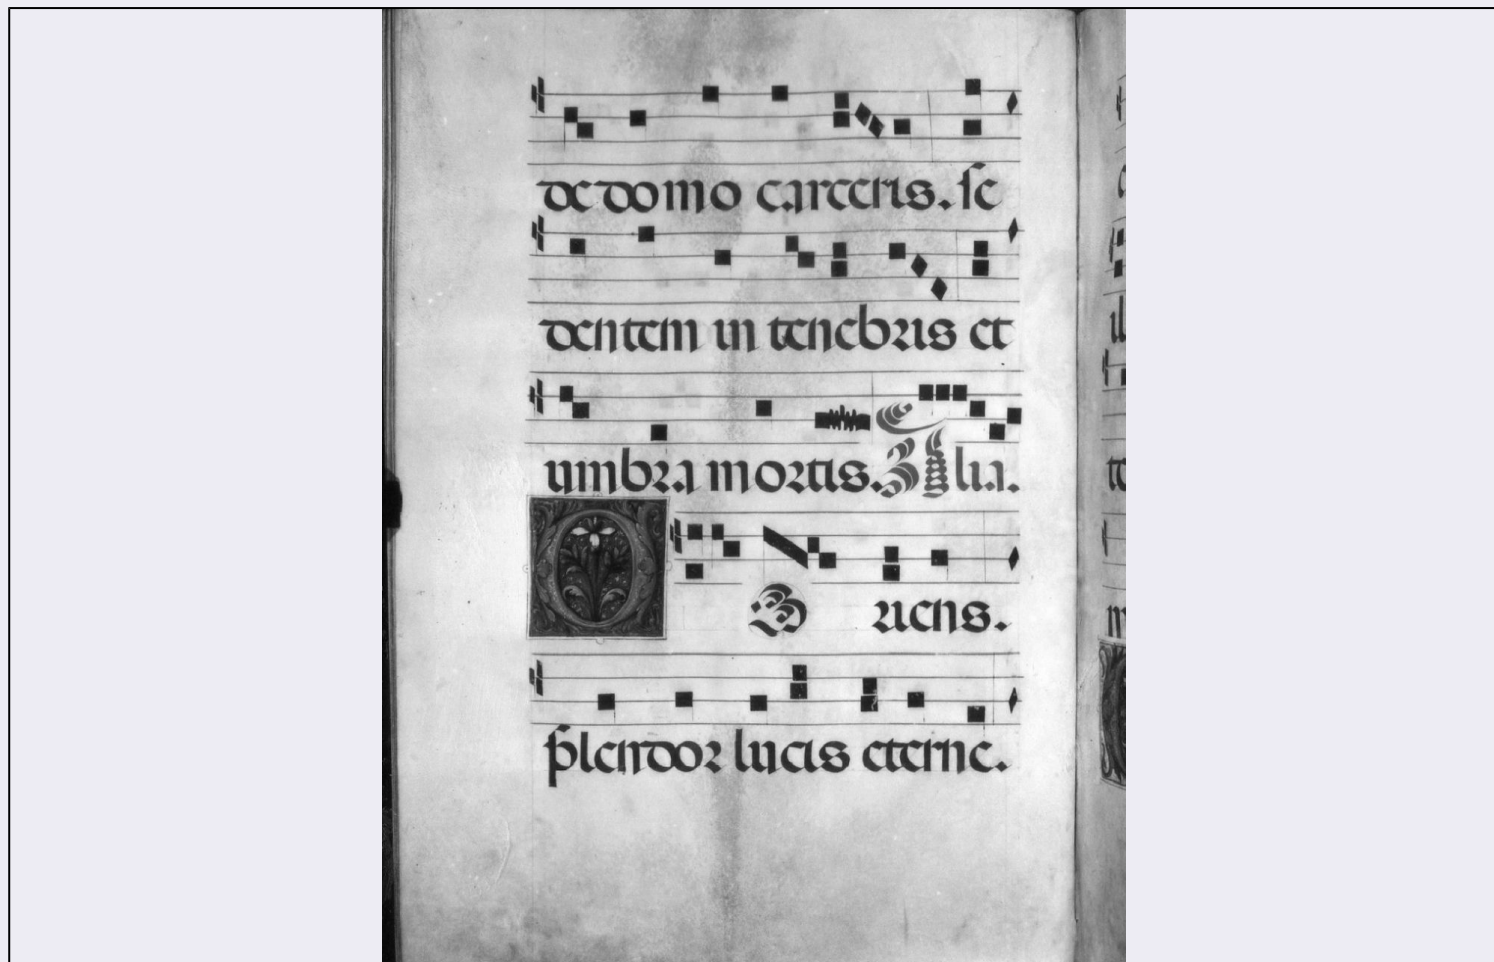 de domo carceris. se
dentem in tenebris et
umbra mortis. Alia.
O Riens.
splendor lucis eterne.